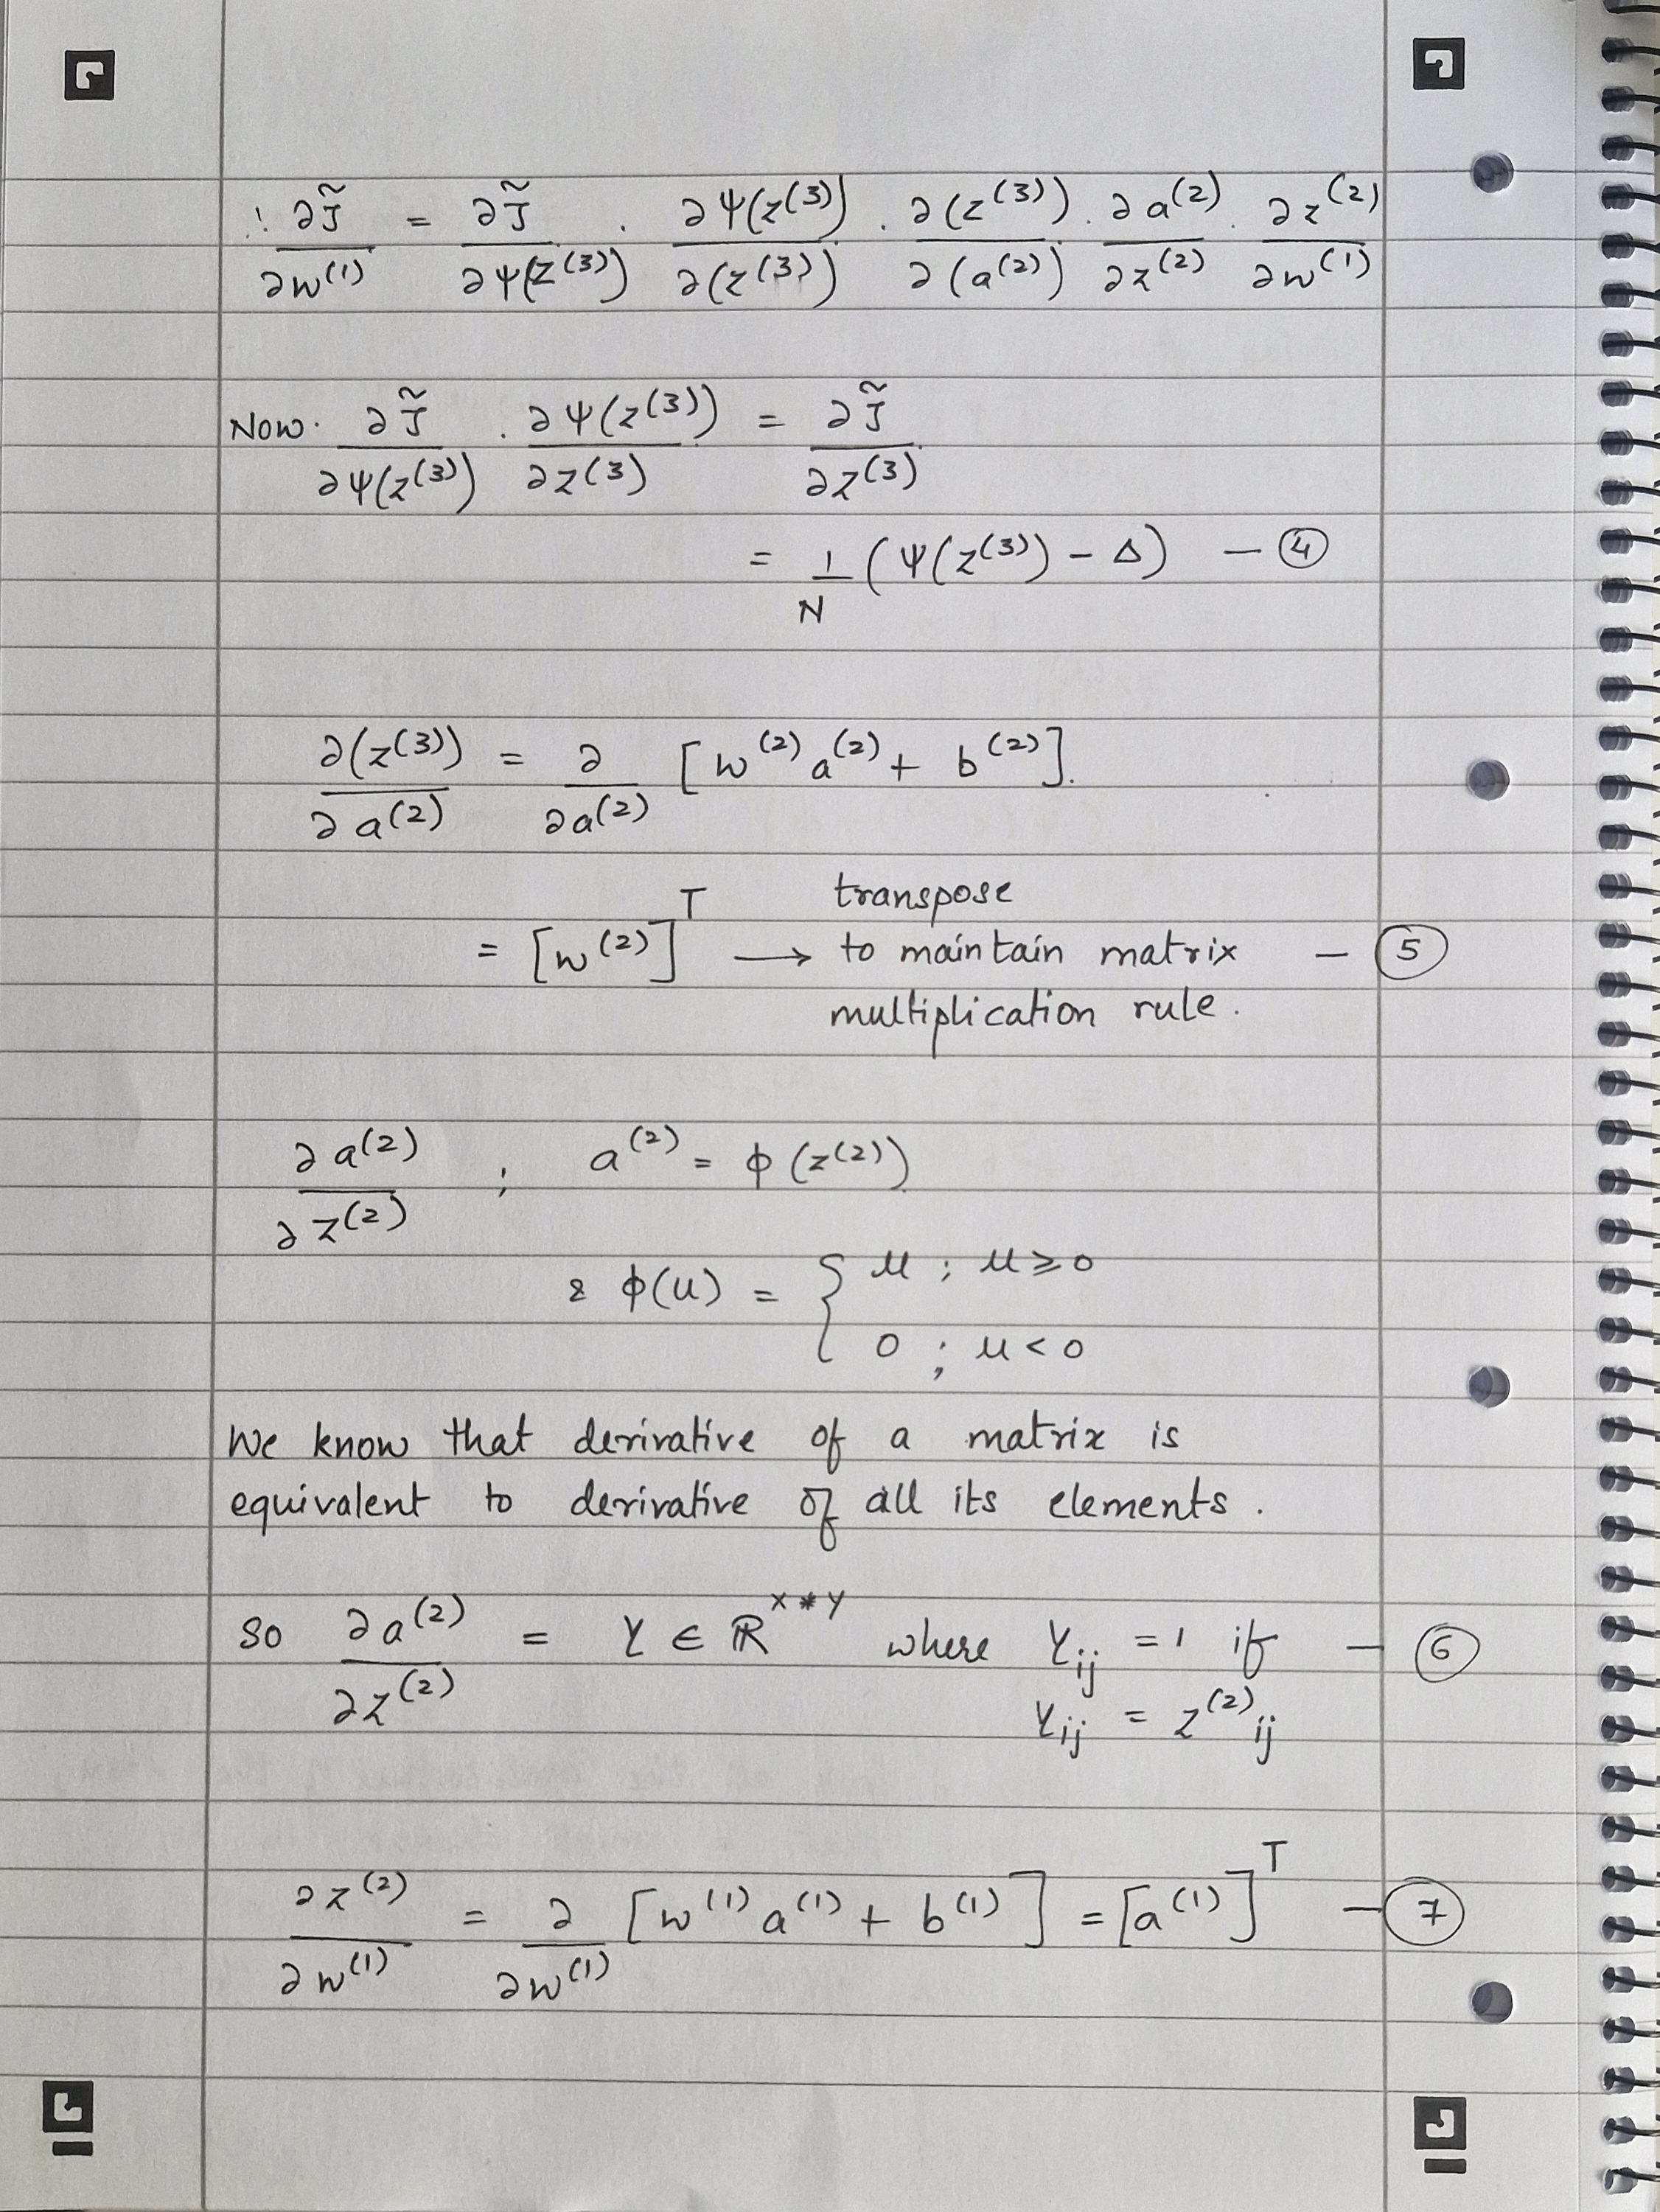 ∴ ∂J̃/∂w⁽¹⁾ = ∂J̃/∂Ψ(z⁽³⁾) . ∂Ψ(z⁽³⁾)/∂(z⁽³⁾) . ∂(z⁽³⁾)/∂(a⁽²⁾) . ∂a⁽²⁾/∂z⁽²⁾ . ∂z⁽²⁾/∂w⁽¹⁾
Now. ∂J̃/∂Ψ(z⁽³⁾) . ∂Ψ(z⁽³⁾)/∂z⁽³⁾ = ∂J̃/∂z⁽³⁾
= 1/N (Ψ(z⁽³⁾) – Δ) — ④
∂(z⁽³⁾)/∂a⁽²⁾ = ∂/∂a⁽²⁾ [w⁽²⁾a⁽²⁾ + b⁽²⁾].
= [w⁽²⁾]ᵀ → transpose
to maintain matrix — ⑤
multiplication rule.
∂a⁽²⁾/∂z⁽²⁾ ; a⁽²⁾ = ϕ(z⁽²⁾)
& ϕ(u) = { u ; u ≥ 0
0 ; u < 0
We know that derivative of a matrix is
equivalent to derivative of all its elements.
So ∂a⁽²⁾/∂z⁽²⁾ = Y ∈ ℝ^(X*Y) where Y_ij = 1 if — ⑥
Y_ij = z⁽²⁾_ij
∂z⁽²⁾/∂w⁽¹⁾ = ∂/∂w⁽¹⁾ [w⁽¹⁾a⁽¹⁾ + b⁽¹⁾] = [a⁽¹⁾]ᵀ — ⑦